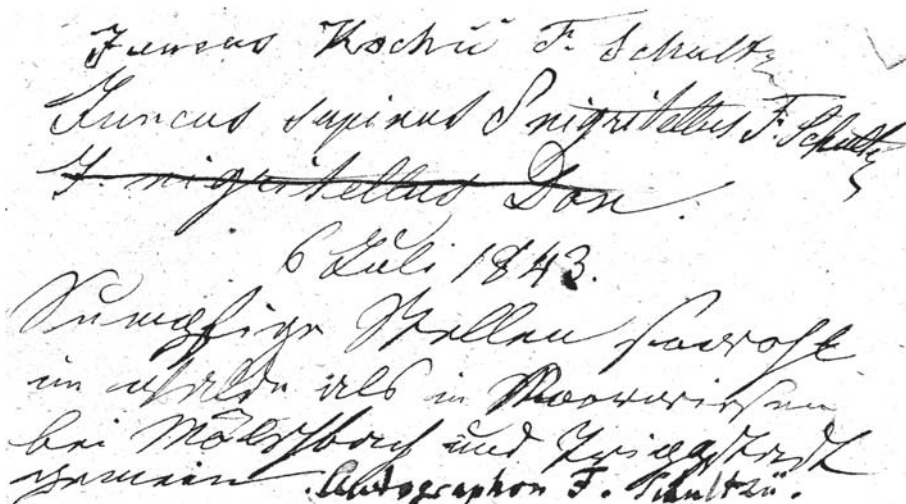 Juncus Kochii F. Schultz
Juncus supinus β nigritellus F. Schultz
J. nigritellus Don.
6 Juli 1843.
Sumpfige Stellen sowohl
im Walde als in Moorwiesen
bei Mölschbach und Trippstadt
gemein. Autographon F. Schultzii.